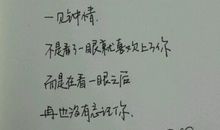 一见钟情.
不是看了一眼就喜欢上了你
而是在看一眼之后
再也没有忘记你.